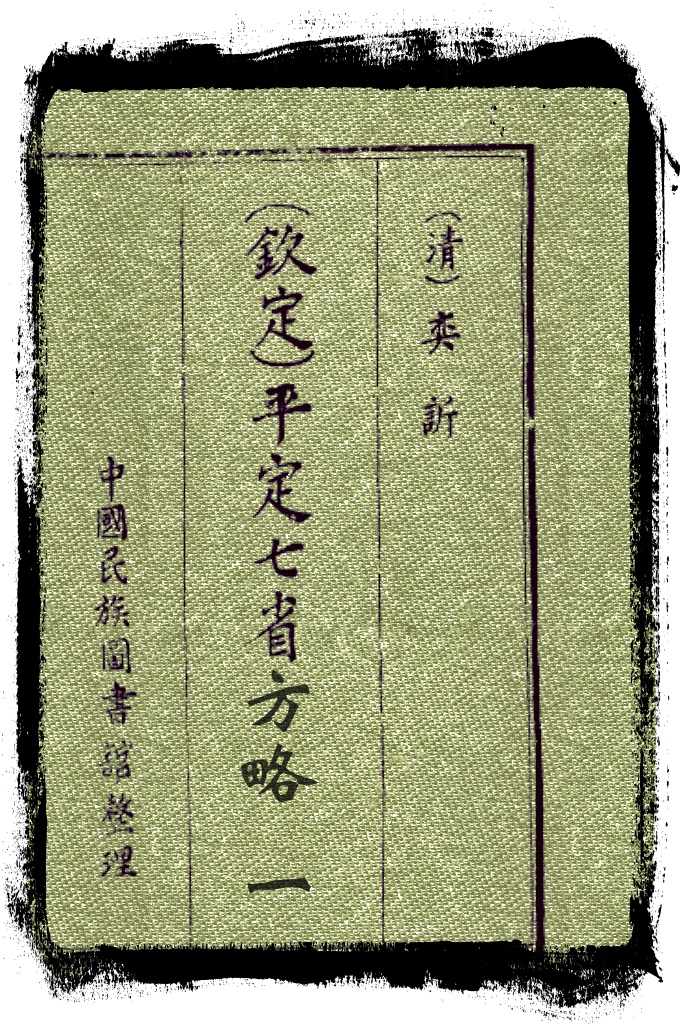 （清）奕訢
（欽定）平定七省方略 一
中國民族圖書舘整理